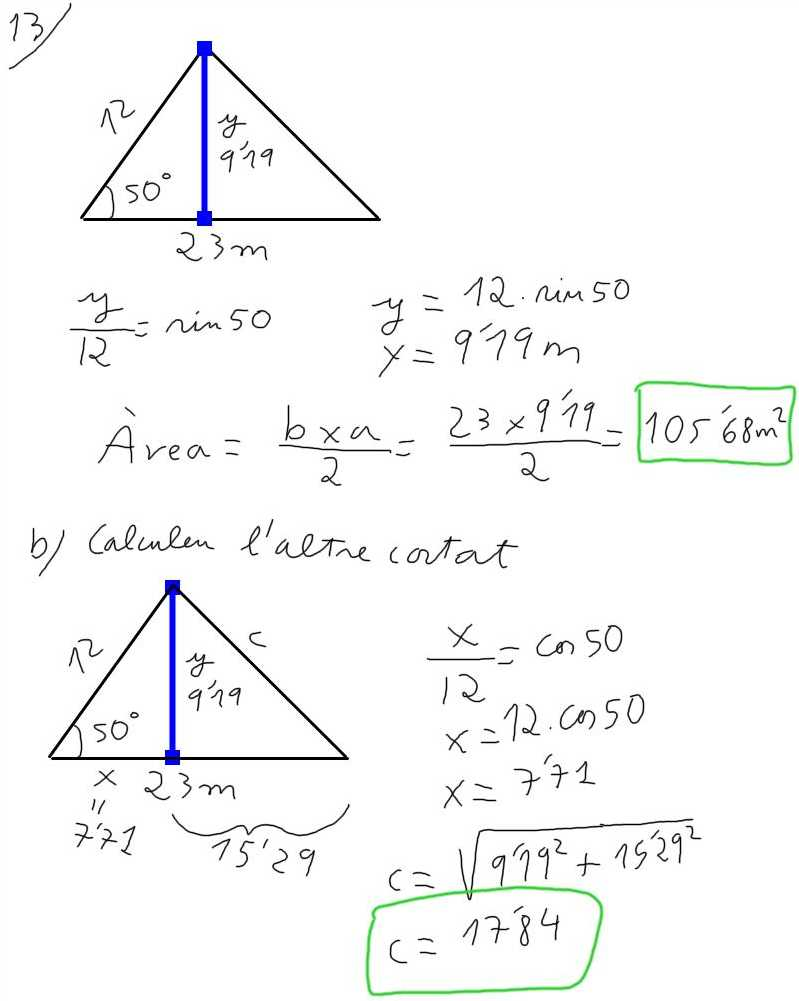 13/
12
y
9'19
50°
23m
y/12 = sin 50
y = 12 · sin 50
y = 9'19 m
Àrea = b x a / 2 = 23 x 9'19 / 2 = 105'68m²
b) Calculem l'altre costat
12
c
y
9'19
50°
x
23m
"
7'71
15'29
x/12 = cos 50
x = 12 · cos 50
x = 7'71
c = √9'19² + 15'29²
c = 17'84